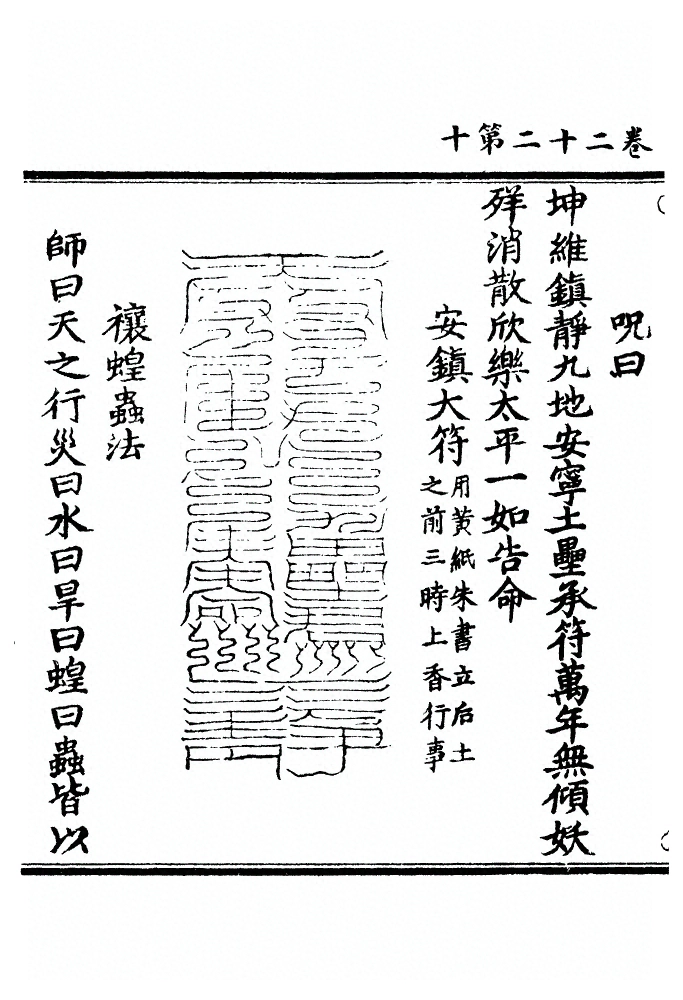 卷二十二第十
呪曰
坤維鎮靜九地安寧土壘承符萬年無傾妖
殍消散欣樂太平一如告命
安鎮大符用黃紙朱書立后土
之前三時上香行事
禳蝗蟲法
師曰天之行災曰水曰旱曰蝗曰蟲皆以